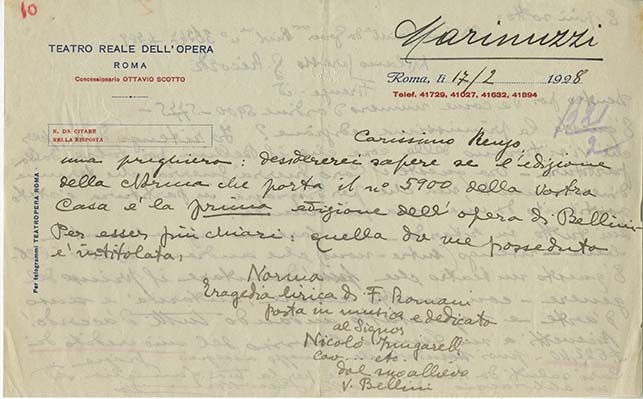 10
TEATRO REALE DELL'OPERA
ROMA
Concessionario OTTAVIO SCOTTO
Marinuzzi
Roma, li 17/2 1928
Telef. 41729, 41027, 41632, 41894
N. DA CITARE
NELLA RISPOSTA
Per telegrammi TEATROPERA ROMA
Carissimo Renzo,
una preghiera: desidererei sapere se l'edizione
della Norma che porta il nº 5900 della vostra
Casa è la prima edizione dell'opera di Bellini
Per esser più chiari: quella da me posseduta
è intitolata:
Norma
Tragedia lirica di F. Romani
posta in musica e dedicata
al Signor
Nicolò Zingarelli
Cav... etc.
dal suo allievo
V. Bellini